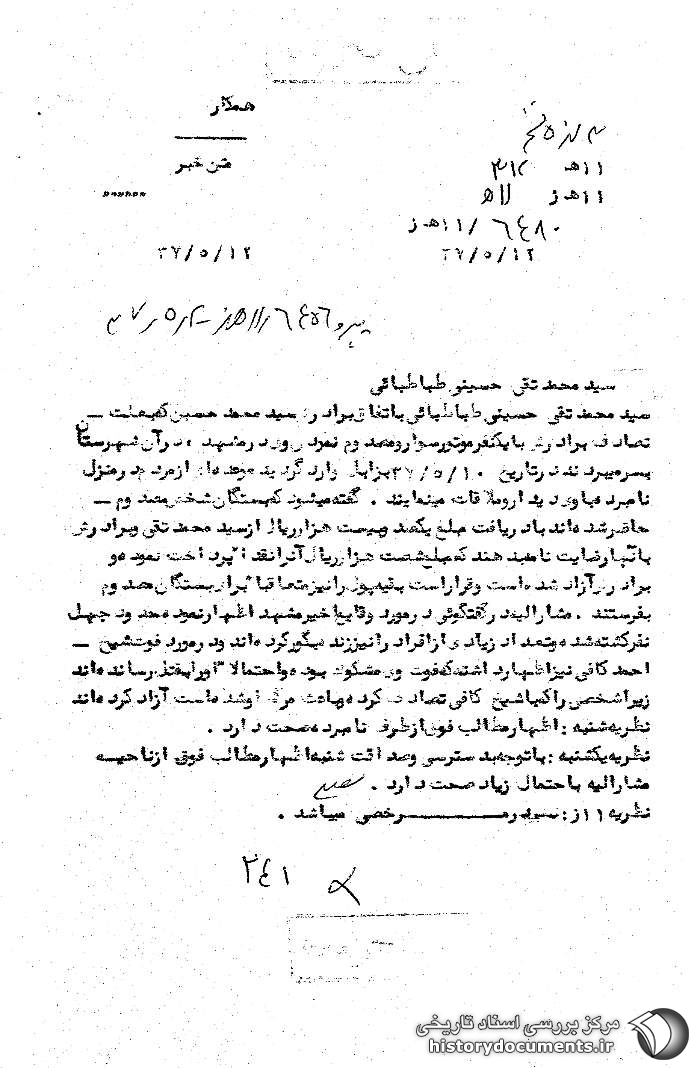 همکار
متن خبر
۱۱هـ ۳۱۲
۱۱هـ ز ۱۱هـ
۶۴۸۰ /۱۱هـ ز
۳۷/۵/۱۲
۳۷/۵/۱۲
سید محمد تقی حسینی طباطبائی
سید محمد تقی حسینی طباطبائی باتفاق برادرش سید محمد حسین که بعلت ــ
تصادف برادرش با یکنفر موتور سوار و مصدوم نمودن وی در مشهد ، در آن شهرستان
بسر میبردند در تاریخ ۳۷/۵/۱۰ بزابل وارد گردیده و عده‌ای از مردم در منزل
نامبرده با وی دیدار و ملاقات مینمایند . گفته میشود که بستگان شخص مصدوم ــ
حاضر شده‌اند با دریافت مبلغ یکصد و بیست هزار ریال از سید محمد تقی و برادرش
بآنها رضایت نامه بدهند که مبلغ شصت هزار ریال آنرا نقداً پرداخت نموده و
برادرش آزاد شده است و قرار است بقیه پول را نیز متعاقباً برای بستگان مصدوم
بفرستند . مشارالیه در گفتگوئی در مورد وقایع اخیر مشهد اظهار نموده حدود چهل
نفر کشته شده و تعداد زیادی از افراد را نیز زنده بگور کرده‌اند و در مورد فوت شیخ ــ
احمد کافی نیز اظهار داشته که فوت وی مشکوک بوده و احتمالاً او را بقتل رسانده‌اند
زیرا شخصی را که با شیخ کافی تصادف کرده و باعث مرگ او شده است آزاد کرده‌اند
نظریه شنبه : اظهار مطالب فوق از طرف نامبرده صحت دارد .
نظریه یکشنبه : با توجه بدسترسی و صداقت شنبه اظهار مطالب فوق از ناحیـــه
مشارالیه با احتمال زیاد صحت دارد .
نظریه ۱۱ز : سه‌شنبه در مـــــــرخصی میباشد .
۲۴۱
مرکز بررسی اسناد تاریخی
historydocuments.ir